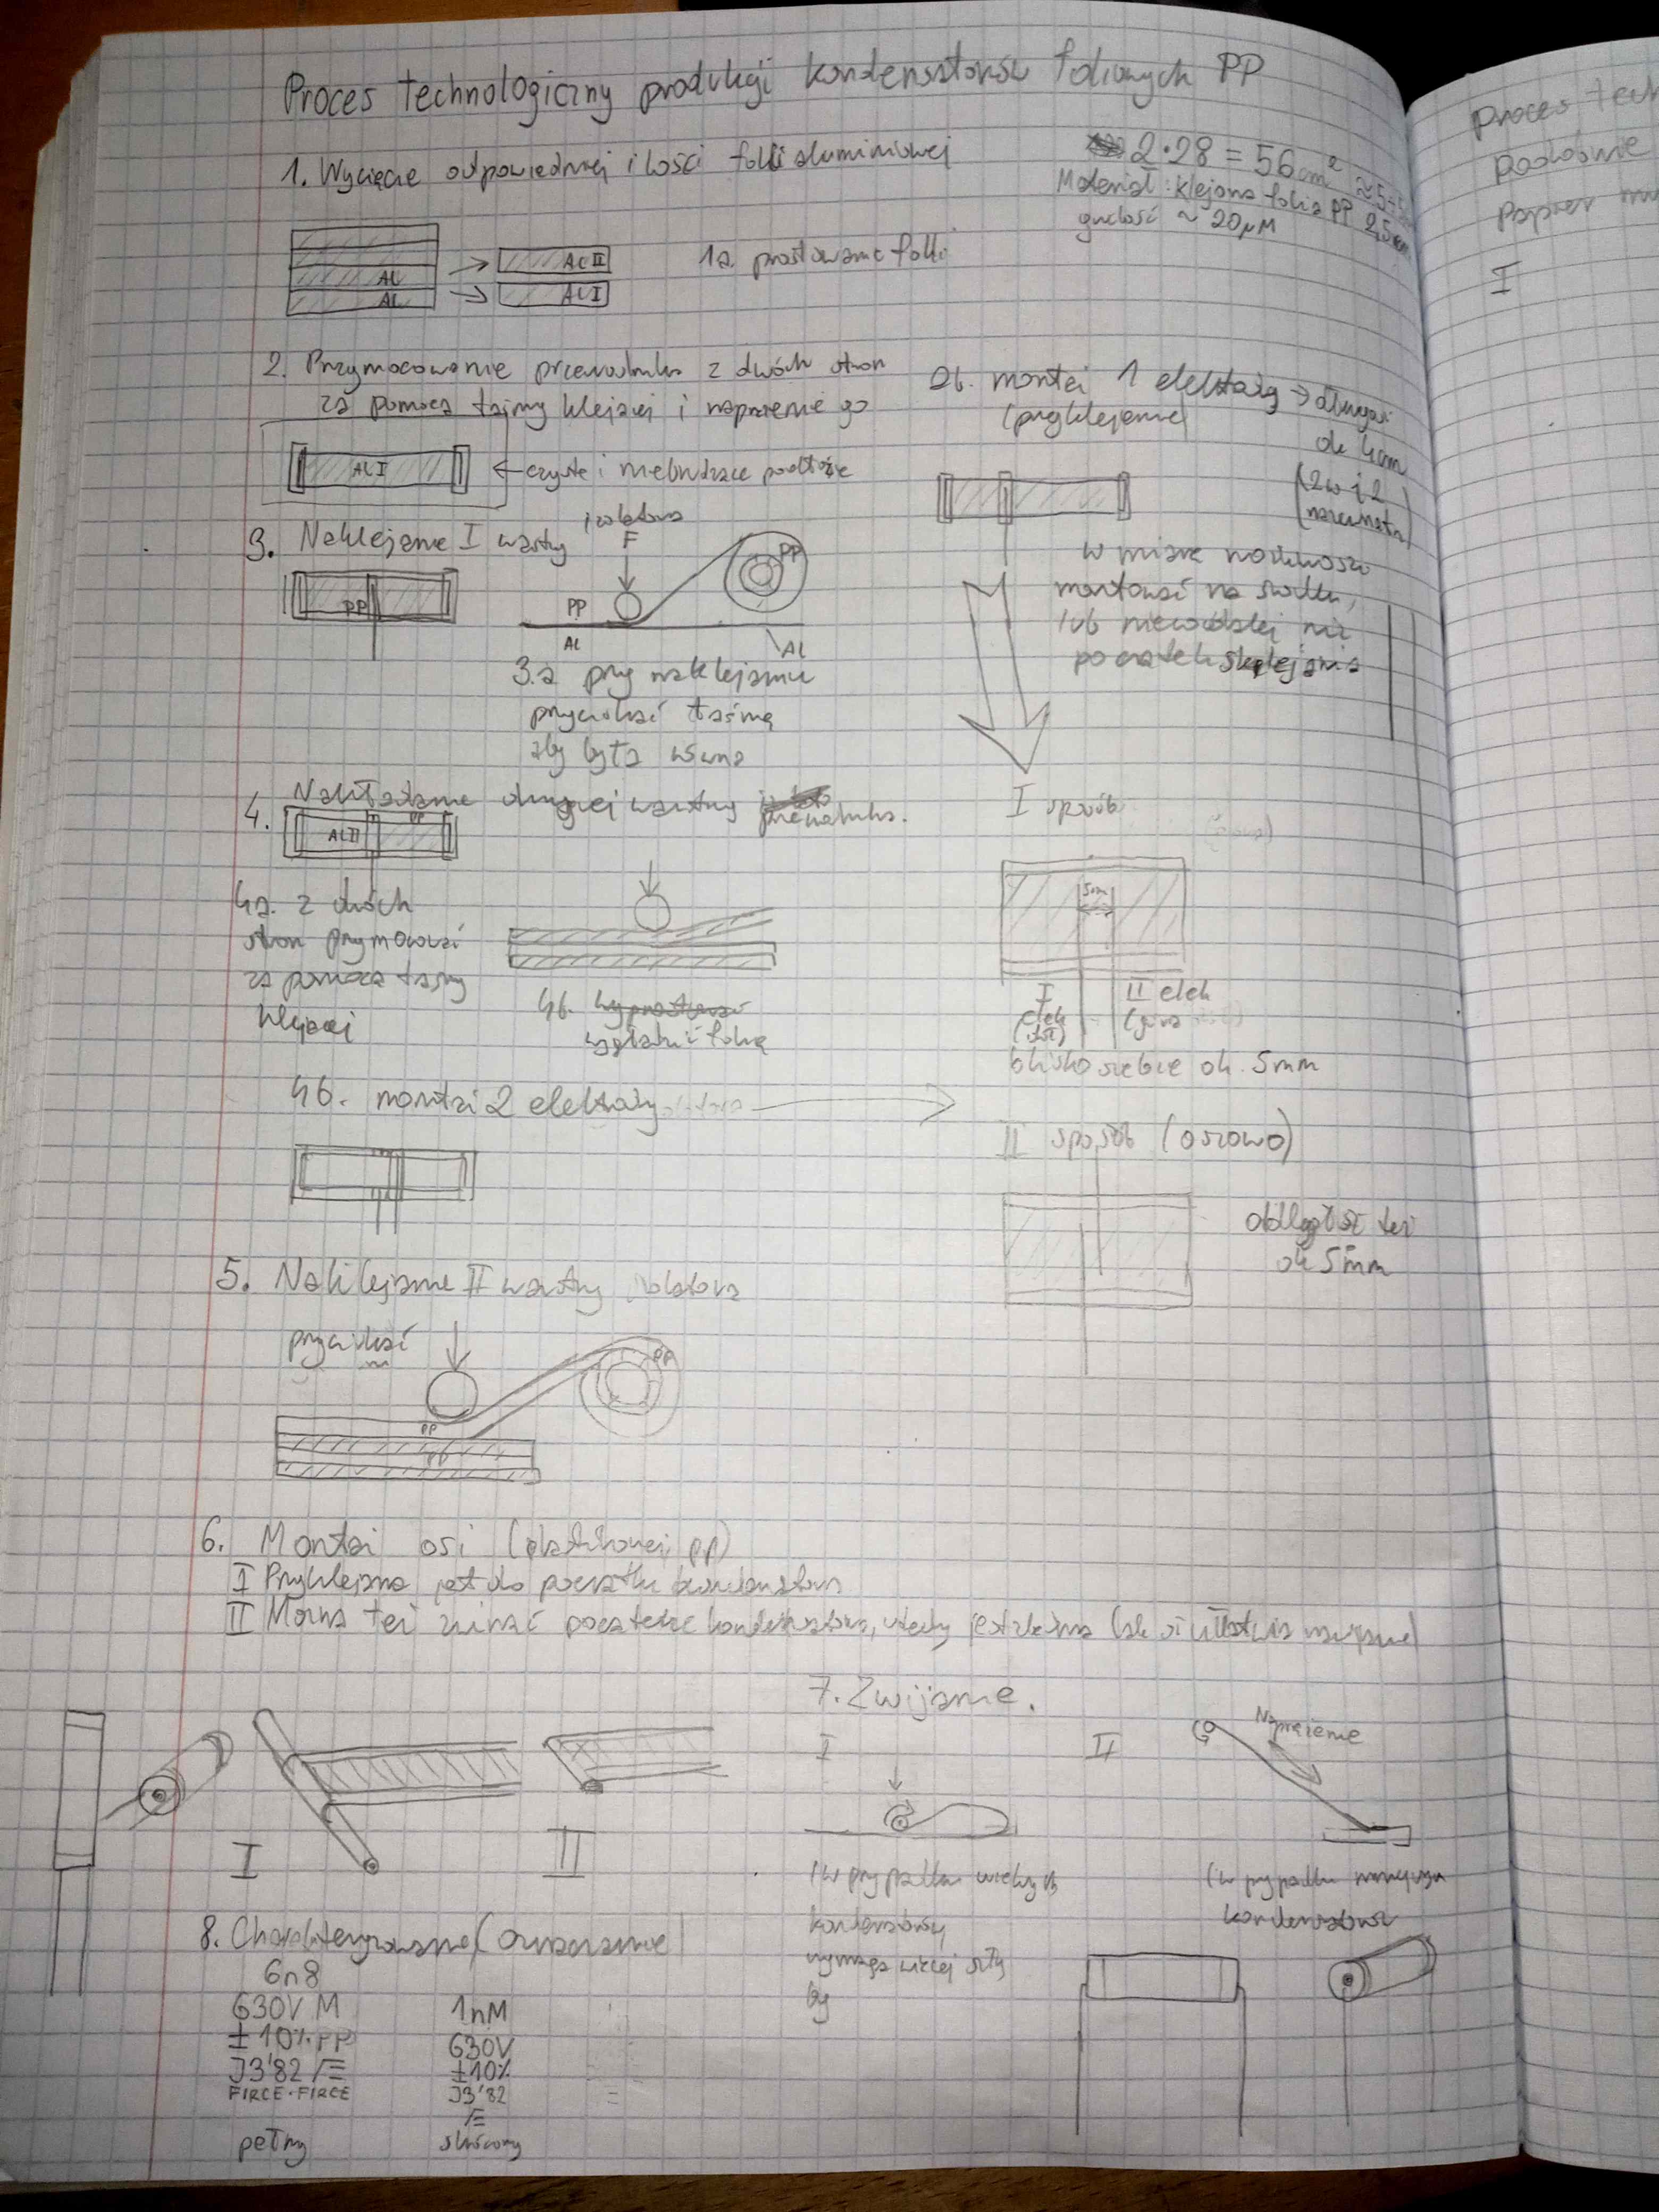 Proces technologiczny produkcji kondensatorów foliowych PP
1. Wycięcie odpowiedniej ilości folii aluminiowej
2·28 = 56cm²
Materiał: klejona folia PP
grubość ~ 20µM
AL
AL
AL II
AL I
1a. prostowanie folii
2. Przymocowanie przewodnika z dwóch stron
za pomocą taśmy klejącej i naprężenie go
AL I
← czyste i niebrudzące podłoże
2b. montaż 1 elektrody → długość
(przyklejenie)
ok 4cm
w miarę możliwości
montować na środku,
lub niewiele niż
początek sklejania
3. Naklejanie I warstwy izolatora
F
PP
PP
PP
AL
AL
3.a przy naklejaniu
przyciskać taśmę
aby była równa
4. Nakładanie drugiej warstwy przewodnika.
AL II
PP
4a. z dwóch
stron przymocować
za pomocą taśmy
klejącej
4b. wyprostować
wygładzić folię
4b. montaż 2 elektrody
I sposób
5mm
I
elek
II elek
(góra
blisko siebie ok. 5mm
II sposób (osiowo)
odległość też
ok 5mm
5. Naklejanie II warstwy izolatora
przyciskać
PP
PP
PP
6. Montaż osi (plastikowej, pp)
I Przyklejana jest do początku kondensatora
II Można też zwinąć początek kondensatora, wtedy jest
I
II
7. Zwijanie.
I
II
Naprężenie
(w przypadku większych
kondensatorów
wymaga więcej siły
by
(w przypadku mniejszych
kondensatorów
8. Charakteryzowanie (Oznaczanie)
6n8
630V M
±10% PP
J3'82
FIRCE·FIRCE
pełny
1nM
630V
±10%
J3'82
skrócony
Proces tech
podobnie
Papier
I